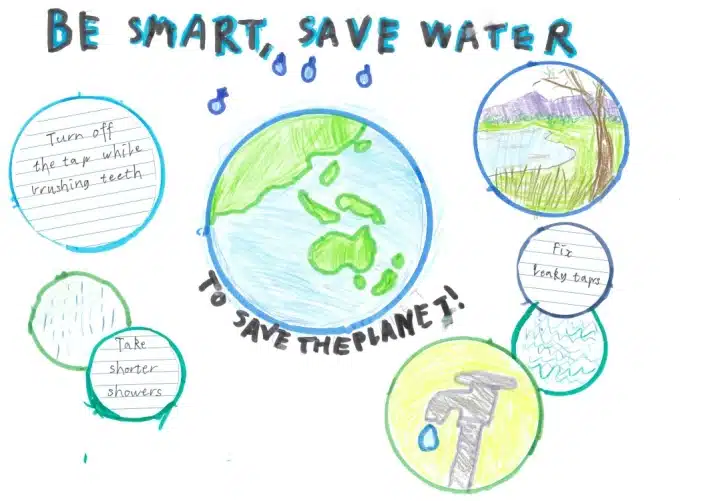 BE SMART, SAVE WATER
Turn off
the tap while
brushing teeth
Fix
leaky taps
TO SAVE THE PLANET!
Take
shorter
showers